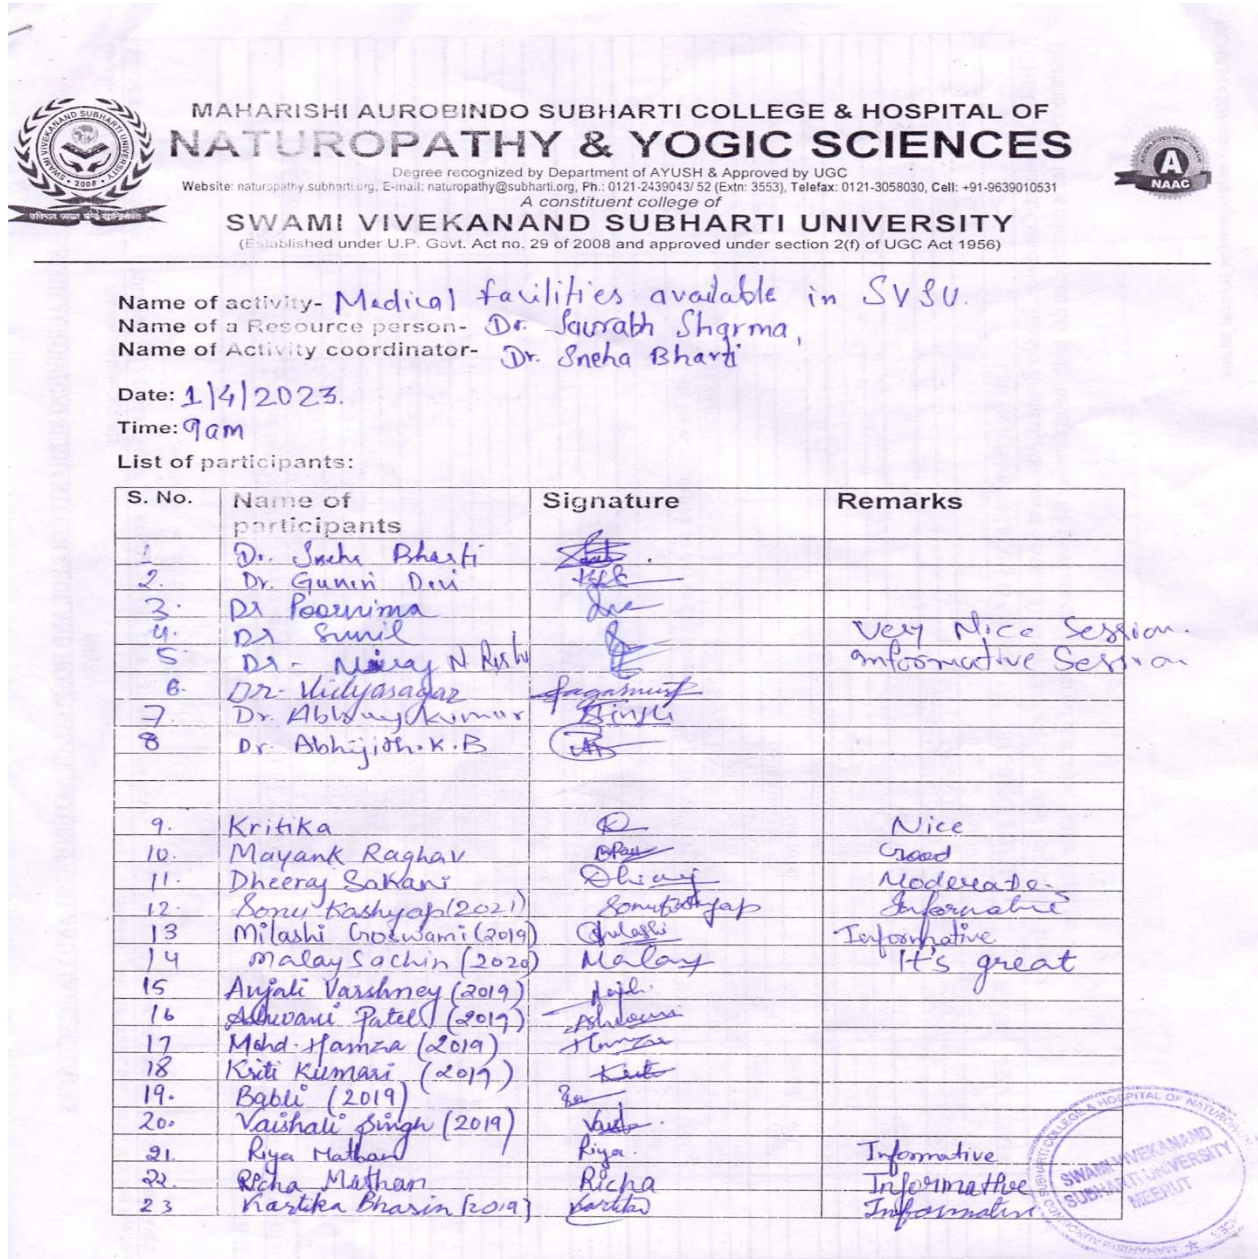 MAHARISHI AUROBINDO SUBHARTI COLLEGE & HOSPITAL OF
NATUROPATHY & YOGIC SCIENCES
Degree recognized by Department of AYUSH & Approved by UGC
Website: naturopathy.subharti.org, E-mail: naturopathy@subharti.org, Ph.: 0121-2439043/ 52 (Extn: 3553), Telefax: 0121-3058030, Cell: +91-9639010531
A constituent college of
SWAMI VIVEKANAND SUBHARTI UNIVERSITY
(Established under U.P. Govt. Act no. 29 of 2008 and approved under section 2(f) of UGC Act 1956)
SWAMI VIVEKANAND SUBHARTI UNIVERSITY
• 2008 •
A
NAAC
Name of activity- Medical facilities available in SVSU.
Name of a Resource person- Dr. Saurabh Sharma,
Name of Activity coordinator- Dr. Sneha Bharti
Date: 1/4/2023.
Time: 9am
List of participants:
S. No. Name of participants Signature Remarks
1 Dr. Sneha Bharti
2. Dr. Gunin Devi
3. Dr Poornima
4. Dr Sunil Very Nice Session.
5 Dr - Niraj N Rishi informative Session
6. Dr- Vidyasagar
7. Dr. Abhay Kumar Singh
8 Dr. Abhijith. K. B
9. Kritika Nice
10. Mayank Raghav Good
11. Dheeraj Sahani Dhiraj Moderate.
12. Sonu Kashyap (2021) Sonu Kashyap Informative
13 Milashi Goswami (2019) Informative
14 Malay Sachin (2020) Malay It's great
15 Anjali Varshney (2019)
16 Ashwani Patel (2019) Ashwani
17 Mohd. Hamza (2019) Hamza
18 Kriti Kumari (2019) Kriti
19. Babli (2019)
20. Vaishali Singh (2019)
21. Riya Mathan Riya. Informative
22. Richa Mathan Richa Informative
23 Kartika Bhasin [2019] Kartika Informative
SWAMI VIVEKANAND
SUBHARTI UNIVERSITY
MEERUT